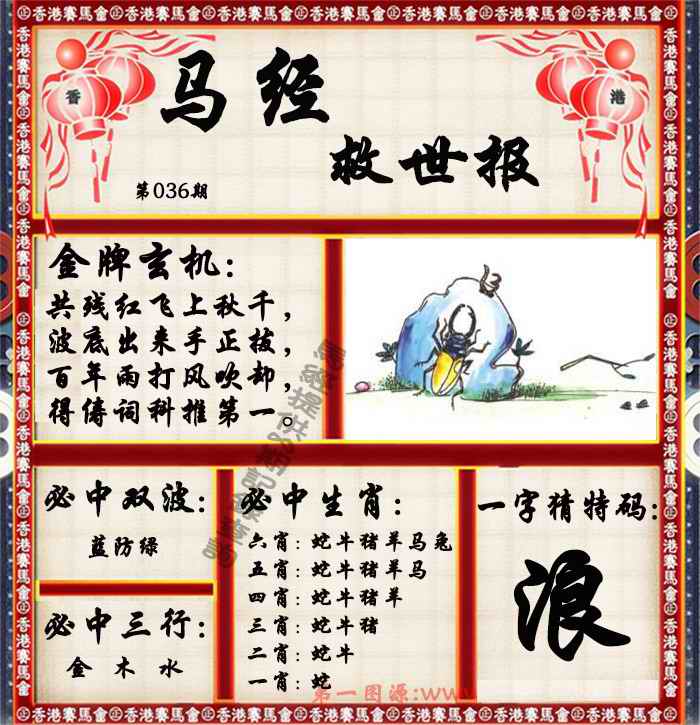 香港賽馬會㊣香港賽馬會㊣香港賽馬會㊣香港賽馬會㊣香港賽馬會㊣香港賽馬會
香
港
马经
救世报
第036期
金牌玄机:
共残红飞上秋千,
波底出来手正拔,
百年雨打风吹却,
得俦词科推第一。
必中双波:
蓝防绿
必中三行:
金 木 水
必中生肖:
六肖:蛇牛猪羊马兔
五肖:蛇牛猪羊马
四肖:蛇牛猪羊
三肖:蛇牛猪
二肖:蛇牛
一肖:蛇
一字猜特码:
浪
第一图源:www